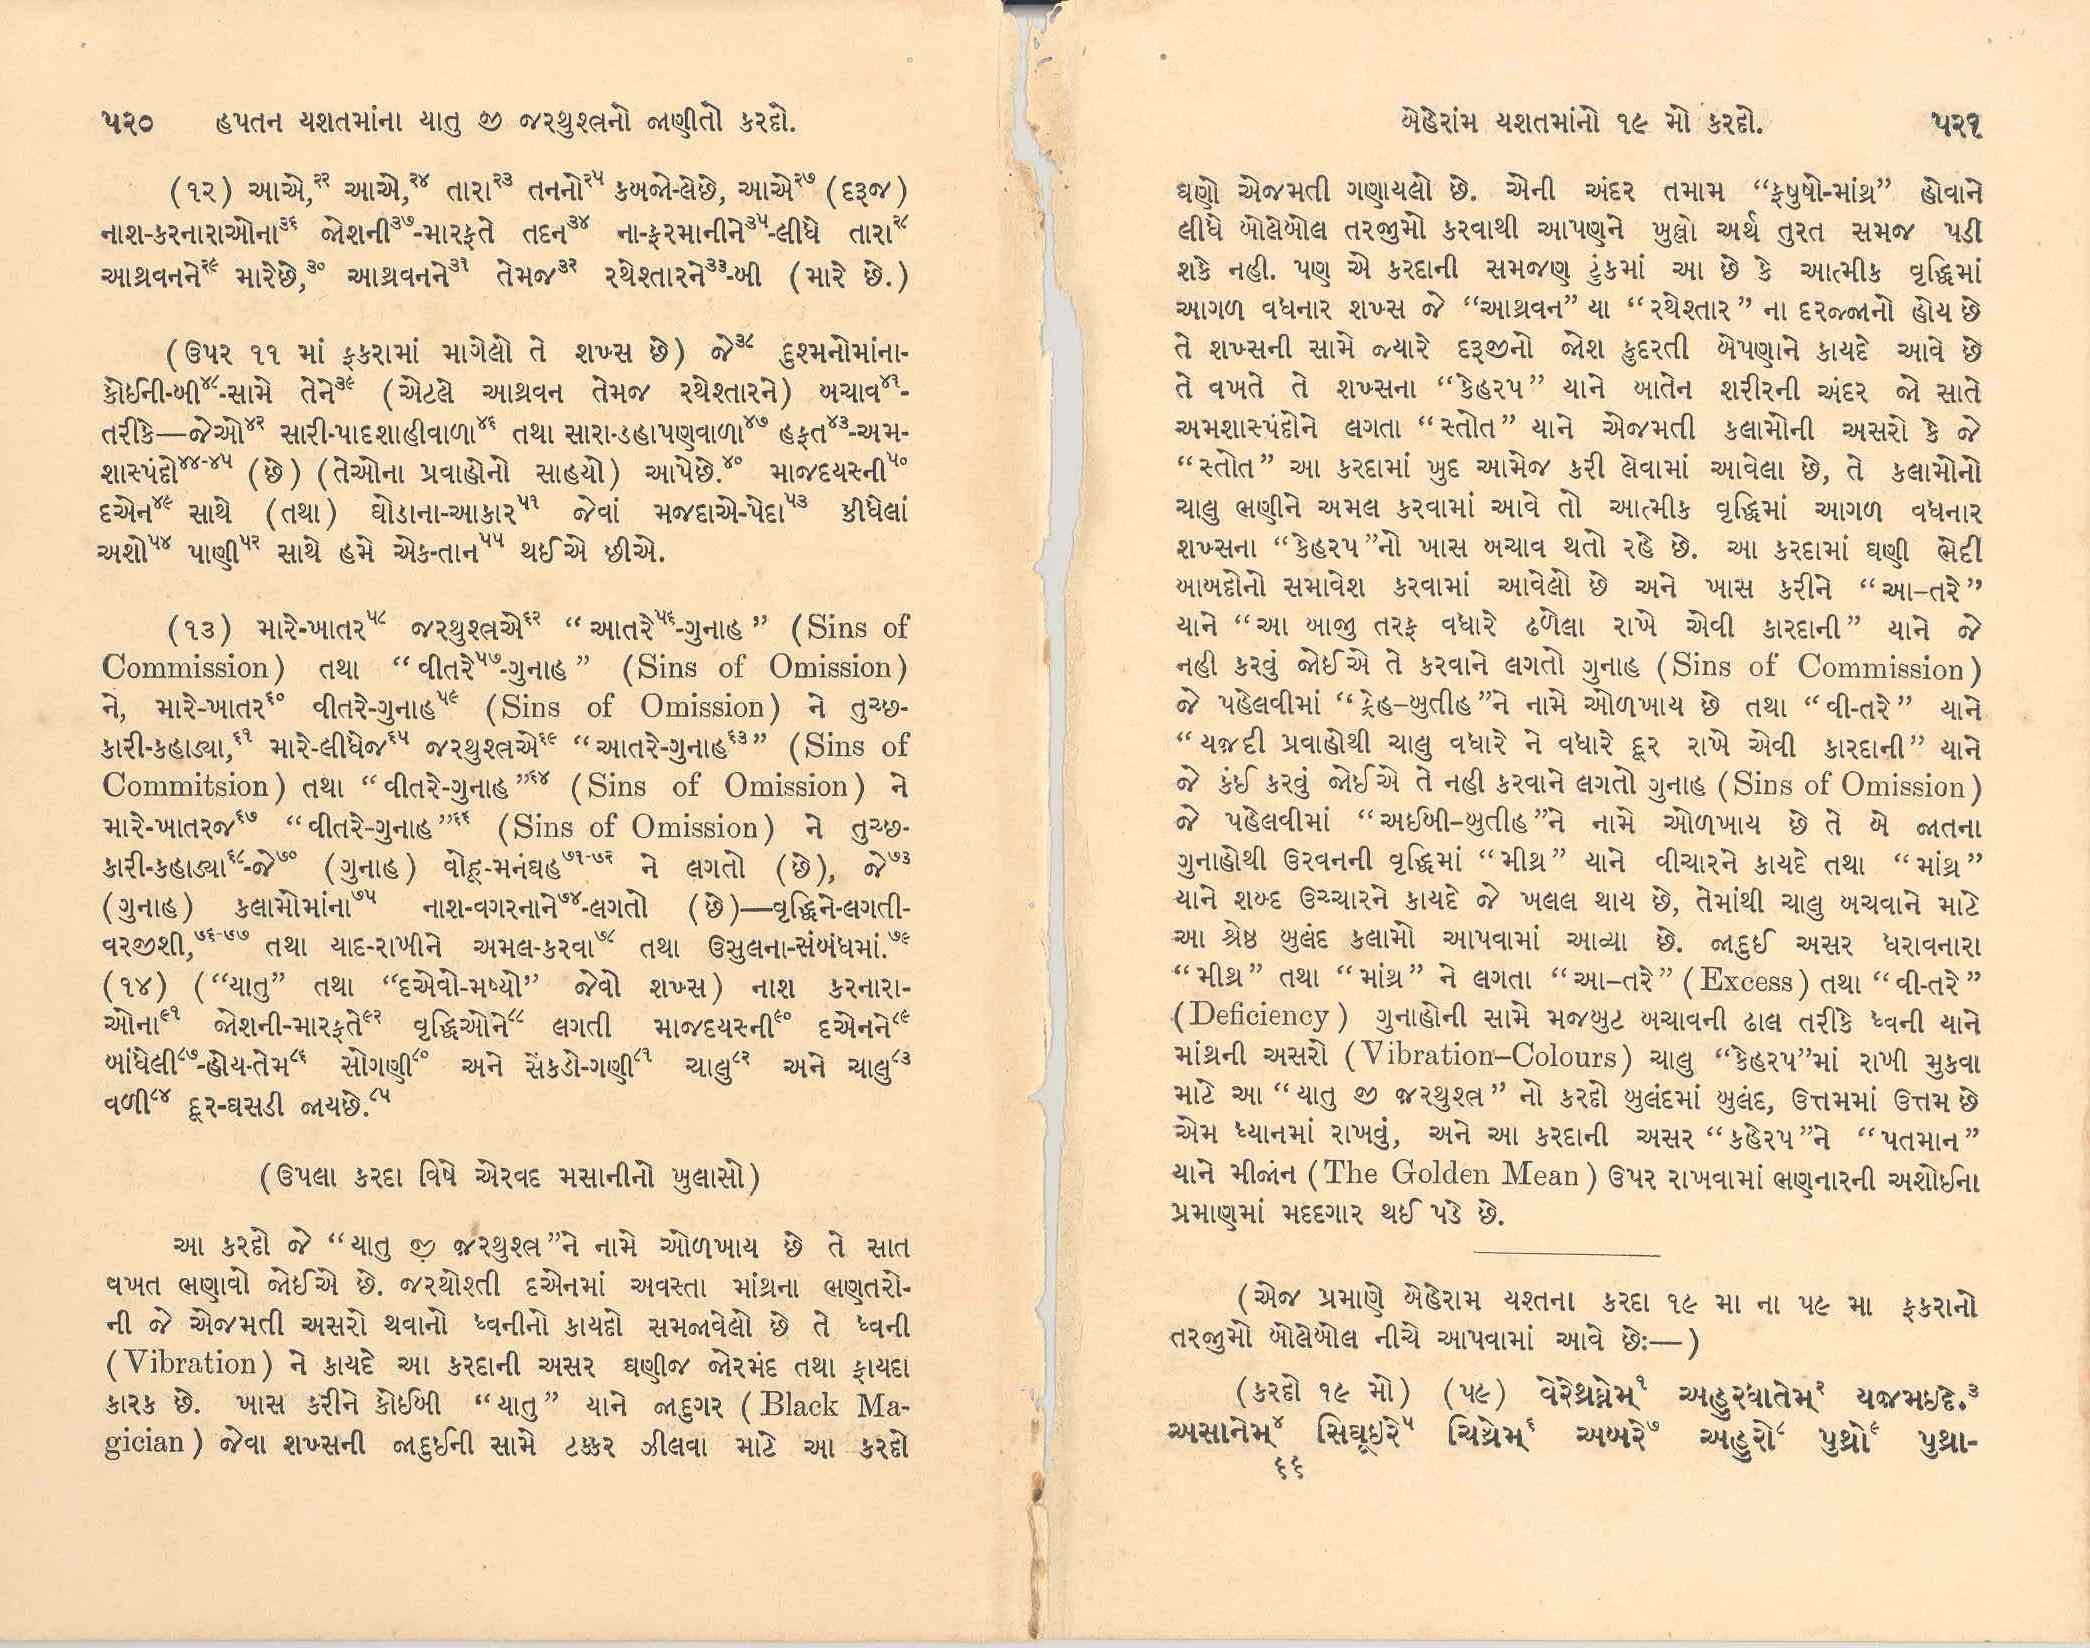 ૫૨૦ હપતન યશતમાંના યાતુ જી જરથુશ્ત્રનો જાણીતો કરદો.
(૧૨) આએ,૨૨ આએ,૨૪ તારા૨૩ તનનો૨૫ કબજો-લેછે, આએ૨૭ (દરૂજ)
નાશ-કરનારાઓના૩૬ જોશની૩૭-મારફતે તદન૩૪ ના-ફરમાનીને૩૫-લીધે તારા૨૮
આથ્રવનને૨૯ મારેછે,૩૦ આથ્રવનને૩૧ તેમજ૩૨ રથેશ્તારને૩૩-બી (મારે છે.)
(ઉપર ૧૧ માં ફકરામાં માગેલો તે શખ્સ છે) જે૩૮ દુશ્મનોમાંના-
કોઈની-બી૪૮-સામે તેને૩૯ (એટલે આથ્રવન તેમજ રથેશ્તારને) બચાવ૪૧-
તરીકે—જેઓ૪૨ સારી-પાદશાહીવાળા૪૬ તથા સારા-ડહાપણવાળા૪૭ હફત૪૩-અમ-
શાસ્પંદો૪૪-૪૫ (છે) (તેઓના પ્રવાહોનો સાહયો) આપેછે.૪૦ માજદયસ્ની૫૦
દએન૪૯ સાથે (તથા) ઘોડાના-આકાર૫૧ જેવાં મજદાએ-પેદા૫૩ કીધેલાં
અશો૫૪ પાણી૫૨ સાથે હમે એક-તાન૫૫ થઈએ છીએ.
(૧૩) મારે-ખાતર૫૮ જરથુશ્ત્રએ૬૨ “આતરે૫૬-ગુનાહ” (Sins of
Commission) તથા “વીતરે૫૭-ગુનાહ” (Sins of Omission)
ને, મારે-ખાતર૬૦ વીતરે-ગુનાહ૫૯ (Sins of Omission) ને તુચ્છ-
કારી-કહાડ્યા,૬૧ મારે-લીધેજ૬૫ જરથુશ્ત્રએ૬૯ “આતરે-ગુનાહ૬૩” (Sins of
Commitsion) તથા “વીતરે-ગુનાહ”૬૪ (Sins of Omission) ને
મારે-ખાતરજ૬૭ “વીતરે-ગુનાહ”૬૬ (Sins of Omission) ને તુચ્છ-
કારી-કહાડ્યા૬૮-જે૭૦ (ગુનાહ) વોહૂ-મનંઘહ૭૧-૭૨ ને લગતો (છે), જે૭૩
(ગુનાહ) કલામોમાંના૭૫ નાશ-વગરનાને૭૪-લગતો (છે)—વૃદ્ધિને-લગતી-
વરજીશી,૭૬-૭૭ તથા યાદ-રાખીને અમલ-કરવા૭૮ તથા ઉસુલના-સંબંધમાં.૭૯
(૧૪) (“યાતુ” તથા “દએવો-મષ્યો” જેવો શખ્સ) નાશ કરનારા-
ઓના૯૧ જોશની-મારફતે૯૨ વૃદ્ધિઓને૮૮ લગતી માજદયસ્ની૯૦ દએનને૮૯
બાંધેલી૮૭-હોય-તેમ૮૬ સોગણી૮૦ અને સેંકડો-ગણી૮૧ ચાલુ૮૨ અને ચાલુ૮૩
વળી૮૪ દૂર-ઘસડી જાયછે.૮૫
(ઉપલા કરદા વિષે એરવદ મસાનીનો ખુલાસો)
આ કરદો જે “યાતુ જી જરથુશ્ત્ર”ને નામે ઓળખાય છે તે સાત
વખત ભણાવો જોઈએ છે. જરથોશ્તી દએનમાં અવસ્તા માંથ્રના ભણતરો-
ની જે એજમતી અસરો થવાનો ધ્વનીનો કાયદો સમજાવેલો છે તે ધ્વની
(Vibration) ને કાયદે આ કરદાની અસર ઘણીજ જોરમંદ તથા ફાયદા
કારક છે. ખાસ કરીને કોઈબી “યાતુ” યાને જાદુગર (Black Ma-
gician) જેવા શખ્સની જાદુઈની સામે ટક્કર ઝીલવા માટે આ કરદો
બેહેરાંમ યશતમાંનો ૧૯ મો કરદો. ૫૨૧
ઘણો એજમતી ગણાયલો છે. એની અંદર તમામ “ફષુષો-માંથ્ર” હોવાને
લીધે બોલેબોલ તરજુમો કરવાથી આપણને ખુલ્લો અર્થ તુરત સમજ પડી
શકે નહી. પણ એ કરદાની સમજણ ટુંકમાં આ છે કે આત્મીક વૃદ્ધિમાં
આગળ વધનાર શખ્સ જે “આથ્રવન” યા “રથેશ્તાર” ના દરજ્જાનો હોય છે
તે શખ્સની સામે જ્યારે દરૂજીનો જોશ કુદરતી બેપણાને કાયદે આવે છે
તે વખતે તે શખ્સના “કેહરપ” યાને બાતેન શરીરની અંદર જો સાતે
અમશાસ્પંદોને લગતા “સ્તોત” યાને એજમતી કલામોની અસરો કે જે
“સ્તોત” આ કરદામાં ખુદ આમેજ કરી લેવામાં આવેલા છે, તે કલામોનો
ચાલુ ભણીને અમલ કરવામાં આવે તો આત્મીક વૃદ્ધિમાં આગળ વધનાર
શખ્સના “કેહરપ”નો ખાસ બચાવ થતો રહે છે. આ કરદામાં ઘણી ભેદી
બાબદોનો સમાવેશ કરવામાં આવેલો છે અને ખાસ કરીને “આ–તરે”
યાને “આ બાજી તરફ વધારે ઢળેલા રાખે એવી કારદાની” યાને જે
નહી કરવું જોઈએ તે કરવાને લગતો ગુનાહ (Sins of Commission)
જે પહેલવીમાં “ક્રેહ–બુતીહ”ને નામે ઓળખાય છે તથા “વી-તરે” યાને
“યજદી પ્રવાહોથી ચાલુ વધારે ને વધારે દૂર રાખે એવી કારદાની” યાને
જે કંઈ કરવું જોઈએ તે નહી કરવાને લગતો ગુનાહ (Sins of Omission)
જે પહેલવીમાં “અઈબી–બુતીહ”ને નામે ઓળખાય છે તે બે જાતના
ગુનાહોથી ઉરવનની વૃદ્ધિમાં “મીથ્ર” યાને વીચારને કાયદે તથા “માંથ્ર”
યાને શબ્દ ઉચ્ચારને કાયદે જે ખલલ થાય છે, તેમાંથી ચાલુ બચવાને માટે
આ શ્રેષ્ઠ બુલંદ કલામો આપવામાં આવ્યા છે. જાદુઈ અસર ધરાવનારા
“મીથ્ર” તથા “માંથ્ર” ને લગતા “આ–તરે” (Excess) તથા “વી-તરે”
(Deficiency) ગુનાહોની સામે મજબુટ બચાવની ઢાલ તરીકે ધ્વની યાને
માંથ્રની અસરો (Vibration–Colours) ચાલુ “કેહરપ”માં રાખી મુકવા
માટે આ “યાતુ જી જરથુશ્ત્ર” નો કરદો બુલંદમાં બુલંદ, ઉત્તમમાં ઉત્તમ છે
એમ ધ્યાનમાં રાખવું, અને આ કરદાની અસર “કહેરપ”ને “પતમાન”
યાને મીજાંન (The Golden Mean) ઉપર રાખવામાં ભણનારની અશોઈના
પ્રમાણમાં મદદગાર થઈ પડે છે.
(એજ પ્રમાણે બેહેરામ યશ્તના કરદા ૧૯ મા ના ૫૯ મા ફકરાનો
તરજુમો બોલેબોલ નીચે આપવામાં આવે છેઃ—)
(કરદો ૧૯ મો) (૫૯) વેરેથ્રઘ્નેમ્૧ અહુરધાતેમ્૨ યજમઇદે.૩
અસાનેમ્૪ સિઘૂઇરે૫ ચિથ્રેમ્૬ અબરે૭ અહુરો૮ પુથ્રો૯ પુથ્રા-
૬૬